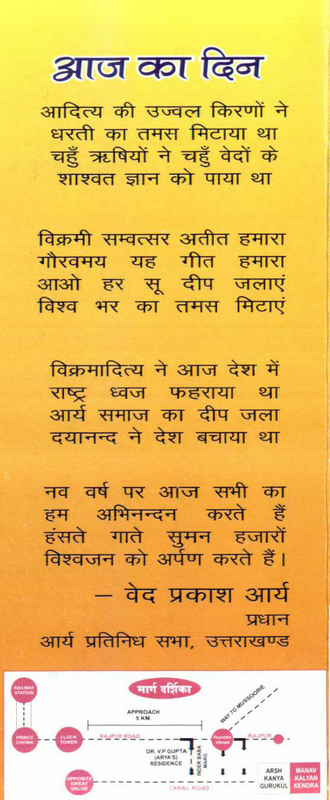 आज का दिन
आदित्य की उज्वल किरणों ने
धरती का तमस मिटाया था
चहुँ ऋषियों ने चहुँ वेदों के
शाश्वत ज्ञान को पाया था
विक्रमी सम्वत्सर अतीत हमारा
गौरवमय यह गीत हमारा
आओ हर सू दीप जलाएं
विश्व भर का तमस मिटाएं
विक्रमादित्य ने आज देश में
राष्ट्र ध्वज फहराया था
आर्य समाज का दीप जला
दयानन्द ने देश बचाया था
नव वर्ष पर आज सभी का
हम अभिनन्दन करते हैं
हंसते गाते सुमन हजारों
विश्वजन को अर्पण करते हैं।
– वेद प्रकाश आर्य
प्रधान
आर्य प्रतिनिध सभा, उत्तराखण्ड
मार्ग दर्शिका
RAILWAY
STATION
APPROACH
5 KM.
WAY TO MUSSOORIE
PRINCE
CHOWK
CLOCK
TOWER
RAJPUR ROAD
DR. V.P GUPTA
(ARYA'S)
RESIDENCE
INDER BABA
MARG
Tourism
Chowk
RAJPUR
OPPOSITE
GREAT
VALUE
CANAL ROAD
ARSH
KANYA
GURUKUL
MANAV
KALYAN
KENDRA